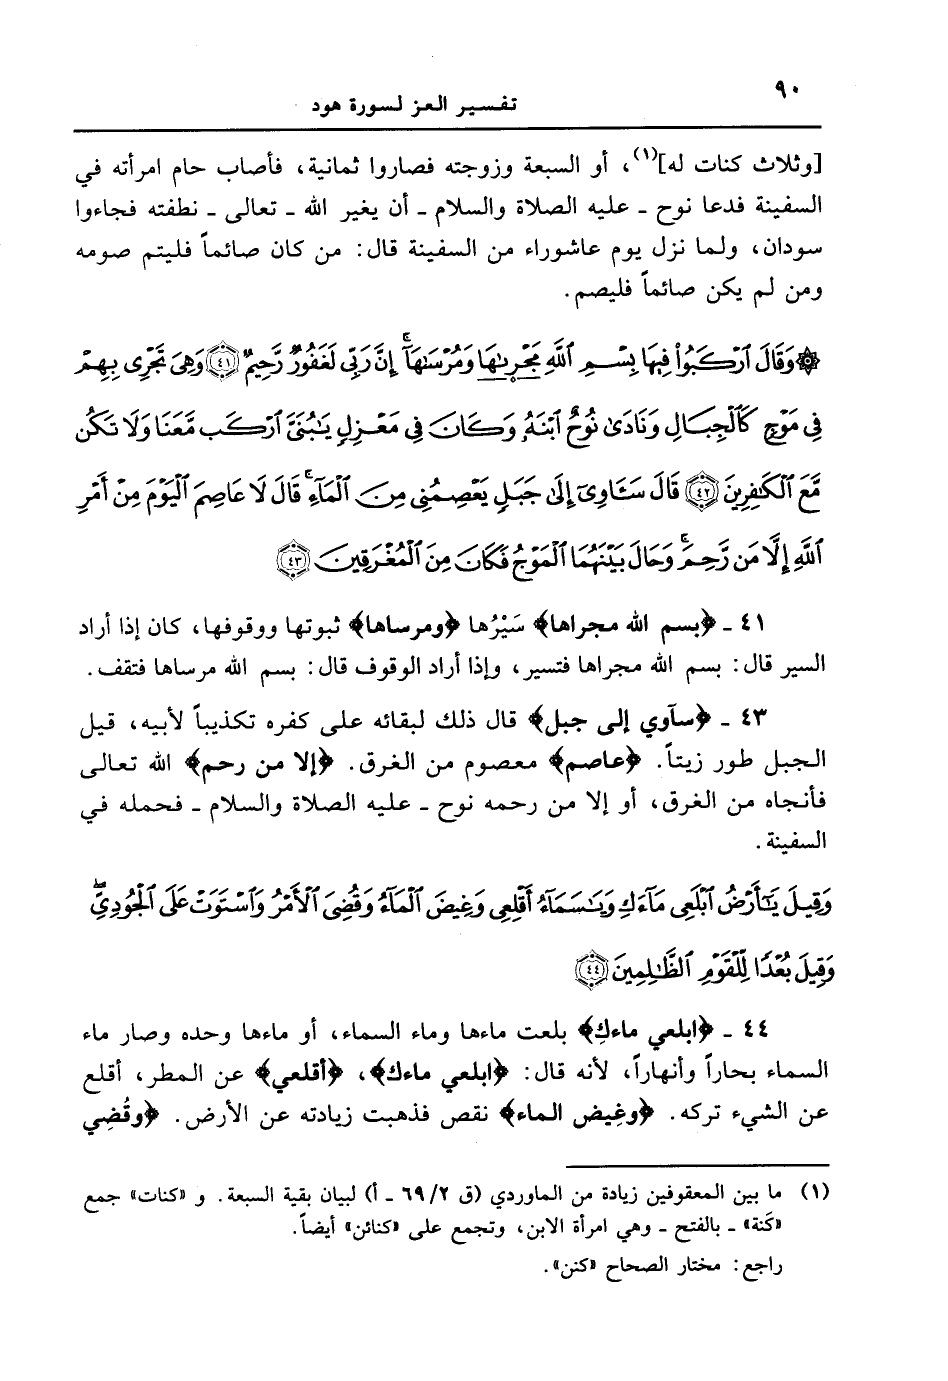 ٩٠
تفسير العز لسورة هود
[وثلاث كنات له](١)، أو السبعة وزوجته فصاروا ثمانية، فأصاب حام امرأته في
السفينة فدعا نوح ـ عليه الصلاة والسلام ـ أن يغير الله ـ تعالى ـ نطفته فجاءوا
سودان، ولما نزل يوم عاشوراء من السفينة قال: من كان صائماً فليتم صومه
ومن لم يكن صائماً فليصم.
۞ وَقَالَ ٱرْكَبُوا۟ فِيهَا بِسْمِ ٱللَّهِ مَجْر۪ىٰهَا وَمُرْسَىٰهَآ ۚ إِنَّ رَبِّى لَغَفُورٌ رَّحِيمٌ ﴿٤١﴾ وَهِىَ تَجْرِى بِهِمْ
فِى مَوْجٍ كَٱلْجِبَالِ وَنَادَىٰ نُوحٌ ٱبْنَهُۥ وَكَانَ فِى مَعْزِلٍ يَٰبُنَىَّ ٱرْكَب مَّعَنَا وَلَا تَكُن
مَّعَ ٱلْكَٰفِرِينَ ﴿٤٢﴾ قَالَ سَـَٔاوِىٓ إِلَىٰ جَبَلٍ يَعْصِمُنِى مِنَ ٱلْمَآءِ ۚ قَالَ لَا عَاصِمَ ٱلْيَوْمَ مِنْ أَمْرِ
ٱللَّهِ إِلَّا مَن رَّحِمَ ۚ وَحَالَ بَيْنَهُمَا ٱلْمَوْجُ فَكَانَ مِنَ ٱلْمُغْرَقِينَ ﴿٤٣﴾
٤١ ـ ﴿بسم الله مجراها﴾ سَيْرُها ﴿ومرساها﴾ ثبوتها ووقوفها، كان إذا أراد
السير قال: بسم الله مجراها فتسير، وإذا أراد الوقوف قال: بسم الله مرساها فتقف.
٤٣ ـ ﴿سآوي إلى جبل﴾ قال ذلك لبقائه على كفره تكذيباً لأبيه، قيل
الجبل طور زيتاً. ﴿عاصم﴾ معصوم من الغرق. ﴿إلا من رحم﴾ الله تعالى
فأنجاه من الغرق، أو إلا من رحمه نوح ـ عليه الصلاة والسلام ـ فحمله في
السفينة.
وَقِيلَ يَٰٓأَرْضُ ٱبْلَعِى مَآءَكِ وَيَٰسَمَآءُ أَقْلِعِى وَغِيضَ ٱلْمَآءُ وَقُضِىَ ٱلْأَمْرُ وَٱسْتَوَتْ عَلَى ٱلْجُودِىِّ ۖ
وَقِيلَ بُعْدًا لِّلْقَوْمِ ٱلظَّٰلِمِينَ ﴿٤٤﴾
٤٤ ـ ﴿ابلعي ماءكِ﴾ بلعت ماءها وماء السماء، أو ماءها وحده وصار ماء
السماء بحاراً وأنهاراً، لأنه قال: ﴿ابلعي ماءك﴾، ﴿أقلعي﴾ عن المطر، أقلع
عن الشيء تركه. ﴿وغِيض الماء﴾ نقص فذهبت زيادته عن الأرض. ﴿وقُضِي
(١) ما بين المعقوفين زيادة من الماوردي (ق ٦٩/٢ ـ أ) لبيان بقية السبعة. و «كنات» جمع
«كَنة» ـ بالفتح ـ وهي امرأة الابن، وتجمع على «كنائن» أيضاً.
راجع: مختار الصحاح «كنن».